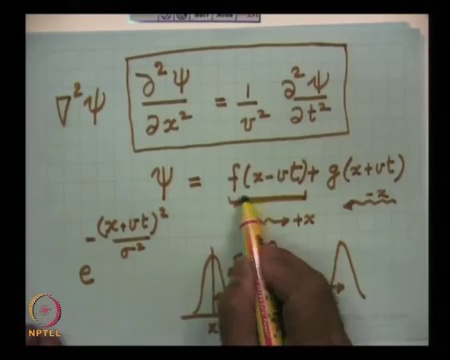 ∇²ψ ∂²ψ/∂x² = 1/v² ∂²ψ/∂t²
ψ = f(x-vt) + g(x+vt)
→ +x ← -x
e^(-(x+vt)²/σ²)
x
NPTEL